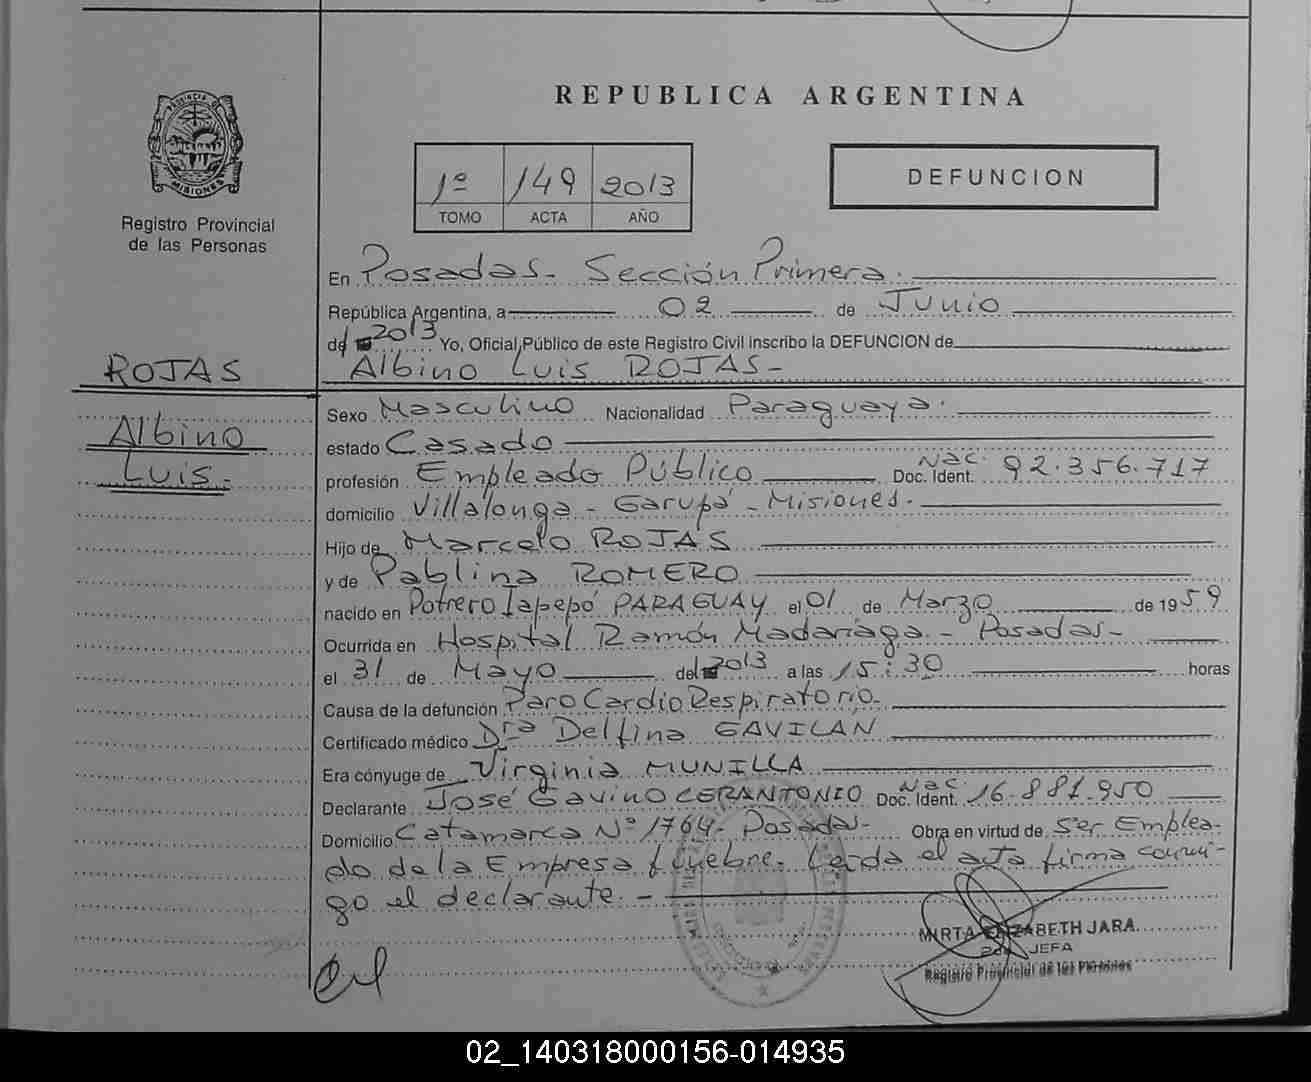 REPUBLICA ARGENTINA
PROVINCIA DE
MISIONES
Registro Provincial
de las Personas
1º 149 2013
TOMO ACTA AÑO
DEFUNCION
En Posadas - Sección Primera.
República Argentina, a 02 de Junio
del 2013 Yo, Oficial Público de este Registro Civil inscribo la DEFUNCION de
ROJAS
Albino Luis ROJAS -
Albino
Luis.-
Sexo Masculino Nacionalidad Paraguaya.
estado Casado
profesión Empleado Público Doc. Ident. Nac. 92.356.717
domicilio Villalonga - Garupá - Misiones.
Hijo de Marcelo ROJAS
y de Pablina ROMERO
nacido en Potrero Iapepó PARAGUAY el 01 de Marzo de 1959
Ocurrida en Hospital Ramón Madariaga - Posadas -
el 31 de Mayo del 2013 a las 15:30 horas
Causa de la defunción Paro Cardio Respiratorio.
Certificado médico Dra Delfina GAVILAN
Era cónyuge de Virginia MUNILLA
Declarante José Gavino CERANTONIO Doc. Ident. Nac. 16.881.950
Domicilio Catamarca Nº 1764 - Posadas - Obra en virtud de Ser Emplea-
do de la Empresa fúnebre. Leída el acta firma conmi-
go el declarante. -
MIRTA ELIZABETH JARA
2da JEFA
Registro Provincial de las Personas
02_140318000156-014935